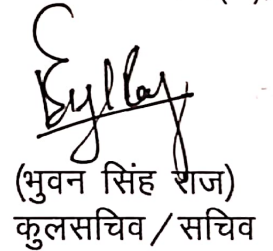 (भुवन सिंह राज)
कुलसचिव / सचिव